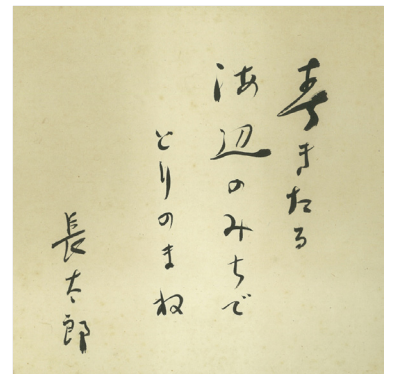 春きたる
海辺のみちで
とりのまね
長太郎